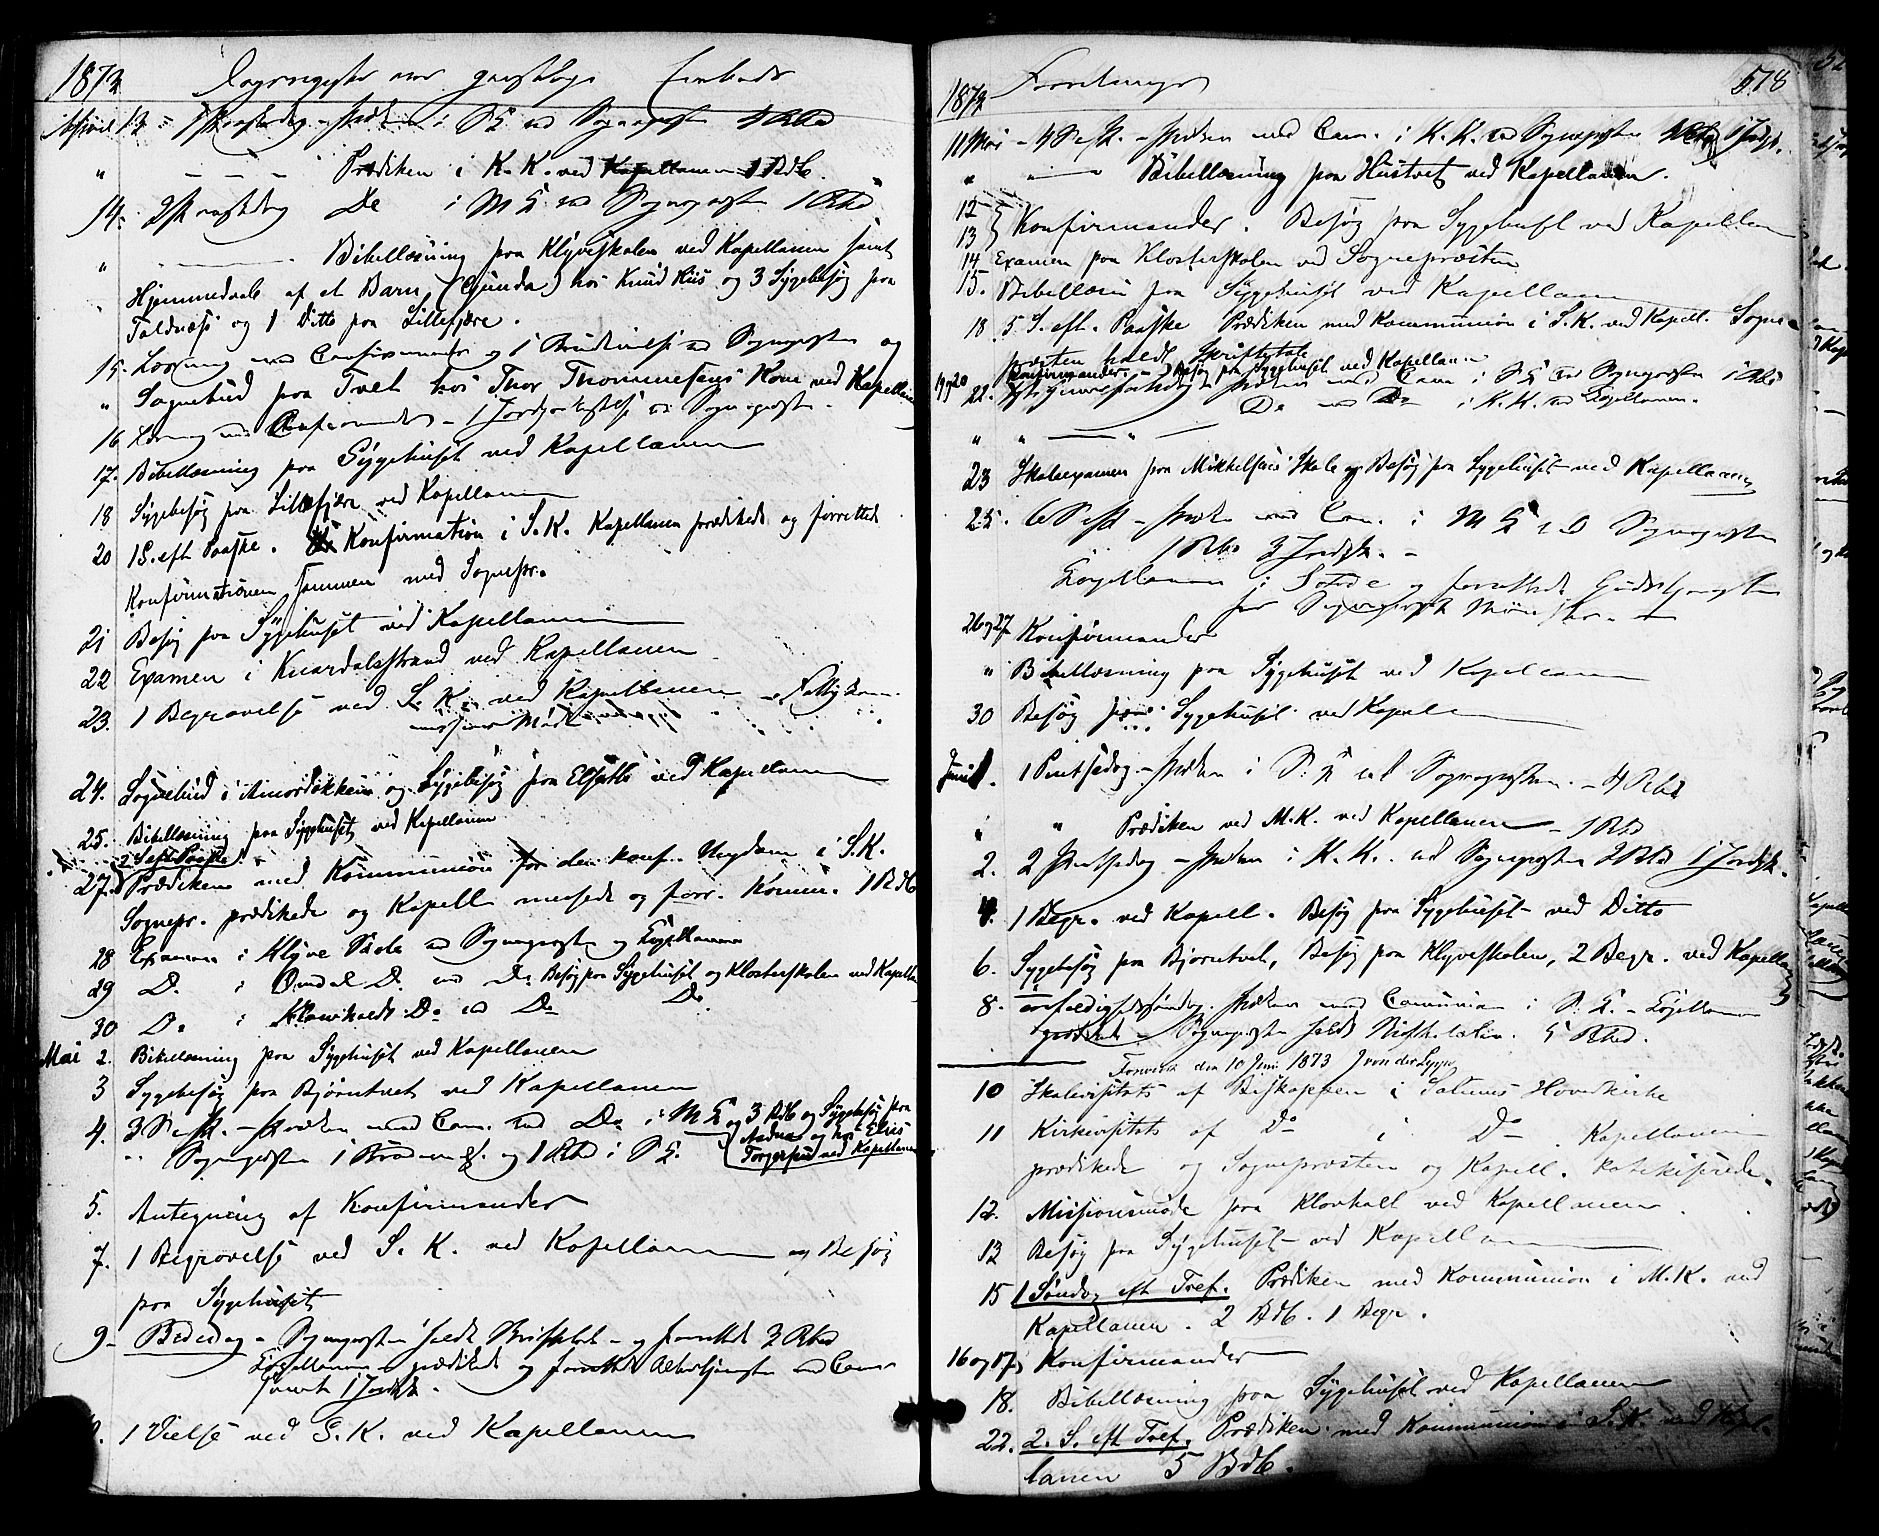 1873 Dagregister over geistlige Embeds
April 13 1 Paaskedag – Præken i S. K. ved Sognepræsten 4 Rbd
" — — — Prædiken i K. K. ved Kapellanen 1 Bdb.
14. 2 Paaskedag Do i M K ved Sognepræsten 1 Rbd
" Bibellæsning paa Klyveskolen ved Kapellanen samt
Hjemmedaab af et Barn (Gunda) hos Knud Hus og 3 Sygebesøg paa
Toldnæs og 1 Ditto paa Lillefjære.
15. Læsning med Confirmander og 1 Brudevielse ved Sognepræsten og
" Sognebud paa Tvet hos Thor Thommesens Kone ved Kapellanen
16 Læsning med Confirmander – 1 Jordpaakastelse ved Sognepræsten.
17. Bibellæsning paa Sygehuset ved Kapellanen
18 Sygebesøg paa Lillefjære ved Kapellanen
20 1 S. eft Paaske. Konfirmation i S. K. Kapellanen prædikede og forrettede
Konfirmationen sammen med Sognepr.
21 Besøg paa Sygehuset ved Kapellanen
22 Examen i Knardalsstrand ved Kapellanen
23. 1 Begravelse ved S. K. ved Kapellanen – Fattigkom-
missions Møde
24. Sognebud i og Sygebesøg paa ved Kapellanen
25. Bibellæsning paa Sygehuset ved Kapellanen
2 S eft Paaske
27. Prædiken med Kommunion for den konf. Ungdom i S. K.
Sognepr. prædikede og Kapell messede og forr. Komm. 1 Bdb
28 Examen i Klyve Skole ved Sognepræsten og Kapellanen
29 Do i Omdal Do ved Do Besøg paa Sygehuset og Klosterskolen ved Kapellan
30 Do i Klovholdt Do ved Do Do
Mai 2. Bibellæsning paa Sygehuset ved Kapellanen
3 Sygebesøg paa Bjørntvet ved Kapellanen
4. 3 S e P. – Præken med Com. ved Do i M K og 3 Bdb og Sygebesøg paa
" Sognepræsten 1 og 1 Rbd i S K. og hos Elias
Torgersen ved Kapellanen
5. Antegning af Konfirmander
7. 1 Begravelse ved S. K. ved Kapellanen og Besøg
paa Sygehuset
9 – Bededag – Sognepræsten holdt Skriftetale – og forrettet 3 Rbd
Kapellanen prædikede og forrettede Altertjenesten med Com
samt 1 Jordfk.
1 Vielse ved S. K. ved Kapellanen
1873 Forretninger 578
11 Mai – 4 S e P. – Præken med Com. i K. K. ved Sognepræsten 1 Jordfk.
" " Bibellæsning paa Hustvet ved Kapellanen.
12
13 } Konfirmander. Besøg paa Sygehuset ved Kapellan
14 Examen paa Klosterskolen ved Sognepræsten
15. Bibellæsn paa Sygehuset ved Kapellanen
18 5. S. eft. Paaske Prædiken med Kommunion i S. K. ved Kapell. Sogne-
præsten holdt Skriftetale
19 og 20 Konfirmander. – Besøg paa Sygehuset ved Kapellanen
22. Chr. Himmelfartsdag Præken med Com i S K ved Sognepræsten 1 Rbd
" " — " — Do med Do i K. K. ved Kapellanen.
23 Skoleexamen paa Mikkelsens Skole og Besøg paa Sygehuset ved Kapellanen
25. 6 S e P – Præken med Com. i M K ved Sognepræsten
1 Rbd 3 Jordfk. –
Kapellanen i og forrettede Gudstjenesten
for Sognepræst
26 og 27 Konfirmander
" Bibellæsning paa Sygehuset ved Kapellanen
30 Besøg paa Sygehuset ved Kapellan
Juni 1. 1 Pintsedag – Præken i S. K ved Sognepræsten. – 4 Rbd
" " Prædiken ved M. K. ved Kapellanen – 1 Rbd
2. 2 Pintsedag – Præken i K. K. ved Sognepræsten 2 Rbd 1 Jordfk.
4. 1 Begr. ved Kapell. Besøg paa Sygehuset ved Ditto
6. Sygebesøg paa Bjørntvet, Besøg paa Klyveskolen, 2 Begr. ved Kapellan
8. Trefoldighedssøndag. Præken med Communion i S. K. – Kapellanen
prædikede – Sognepræsten holdt Skriftetalen. 5 Rbd.
Forevist den 10 Juni 1873 J von der Lippe
10 Skolevisitats af Biskoppen i Solums Hovedkirke
11 Kirkevisitats af Do i Do. Kapellanen
prædikede og Sognepræsten og Kapell. katekiserede.
12. Missionsmøde paa Klovholt ved Kapellanen.
13 Besøg paa Sygehuset ved Kapellanen
15 1 Søndag eft Tref. Prædiken med Kommunion i M. K. ved
Kapellanen. 2 Bdb. 1 Begr.
16 og 17, Konfirmander
18. Bibellæsning paa Sygehuset ved Kapellanen
22. 2. S. eft Tref. Prædiken med Kommunion i S. K. ved Kapel-
lanen 5 Bdb.